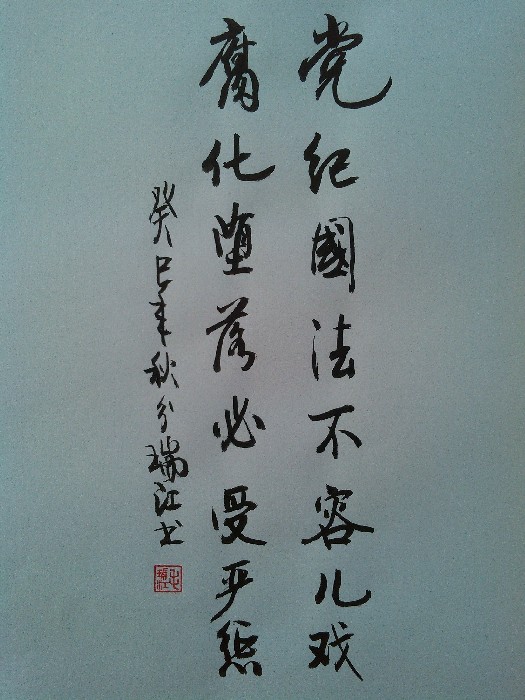 党纪國法不容儿戏
腐化堕落必受严惩
癸巳年秋分瑞江书